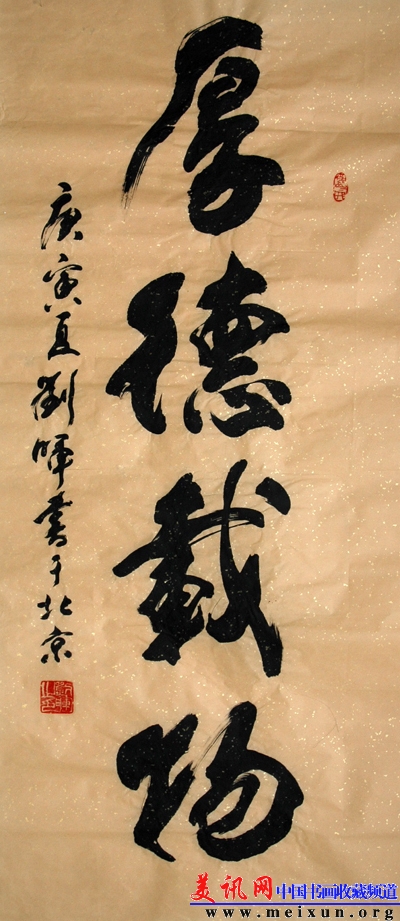 厚德载物
庚寅夏刘晖书于北京
美讯网 中国书画收藏频道
www.meixun.org